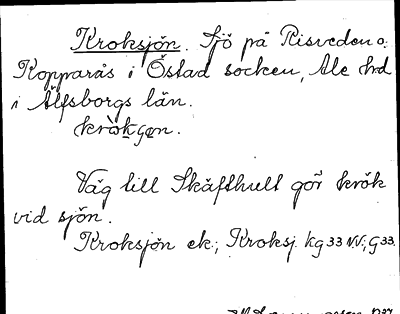 Kroksjön. Sjö på Risveden o.
Kopparås i Östad socken, Ale hd
i Älfsborgs län.
kròkʂøn.
Väg till Skäfthult gör krök
vid sjön.
Kroksjön ek.; Kroksj. kg 33 NV; G 33.